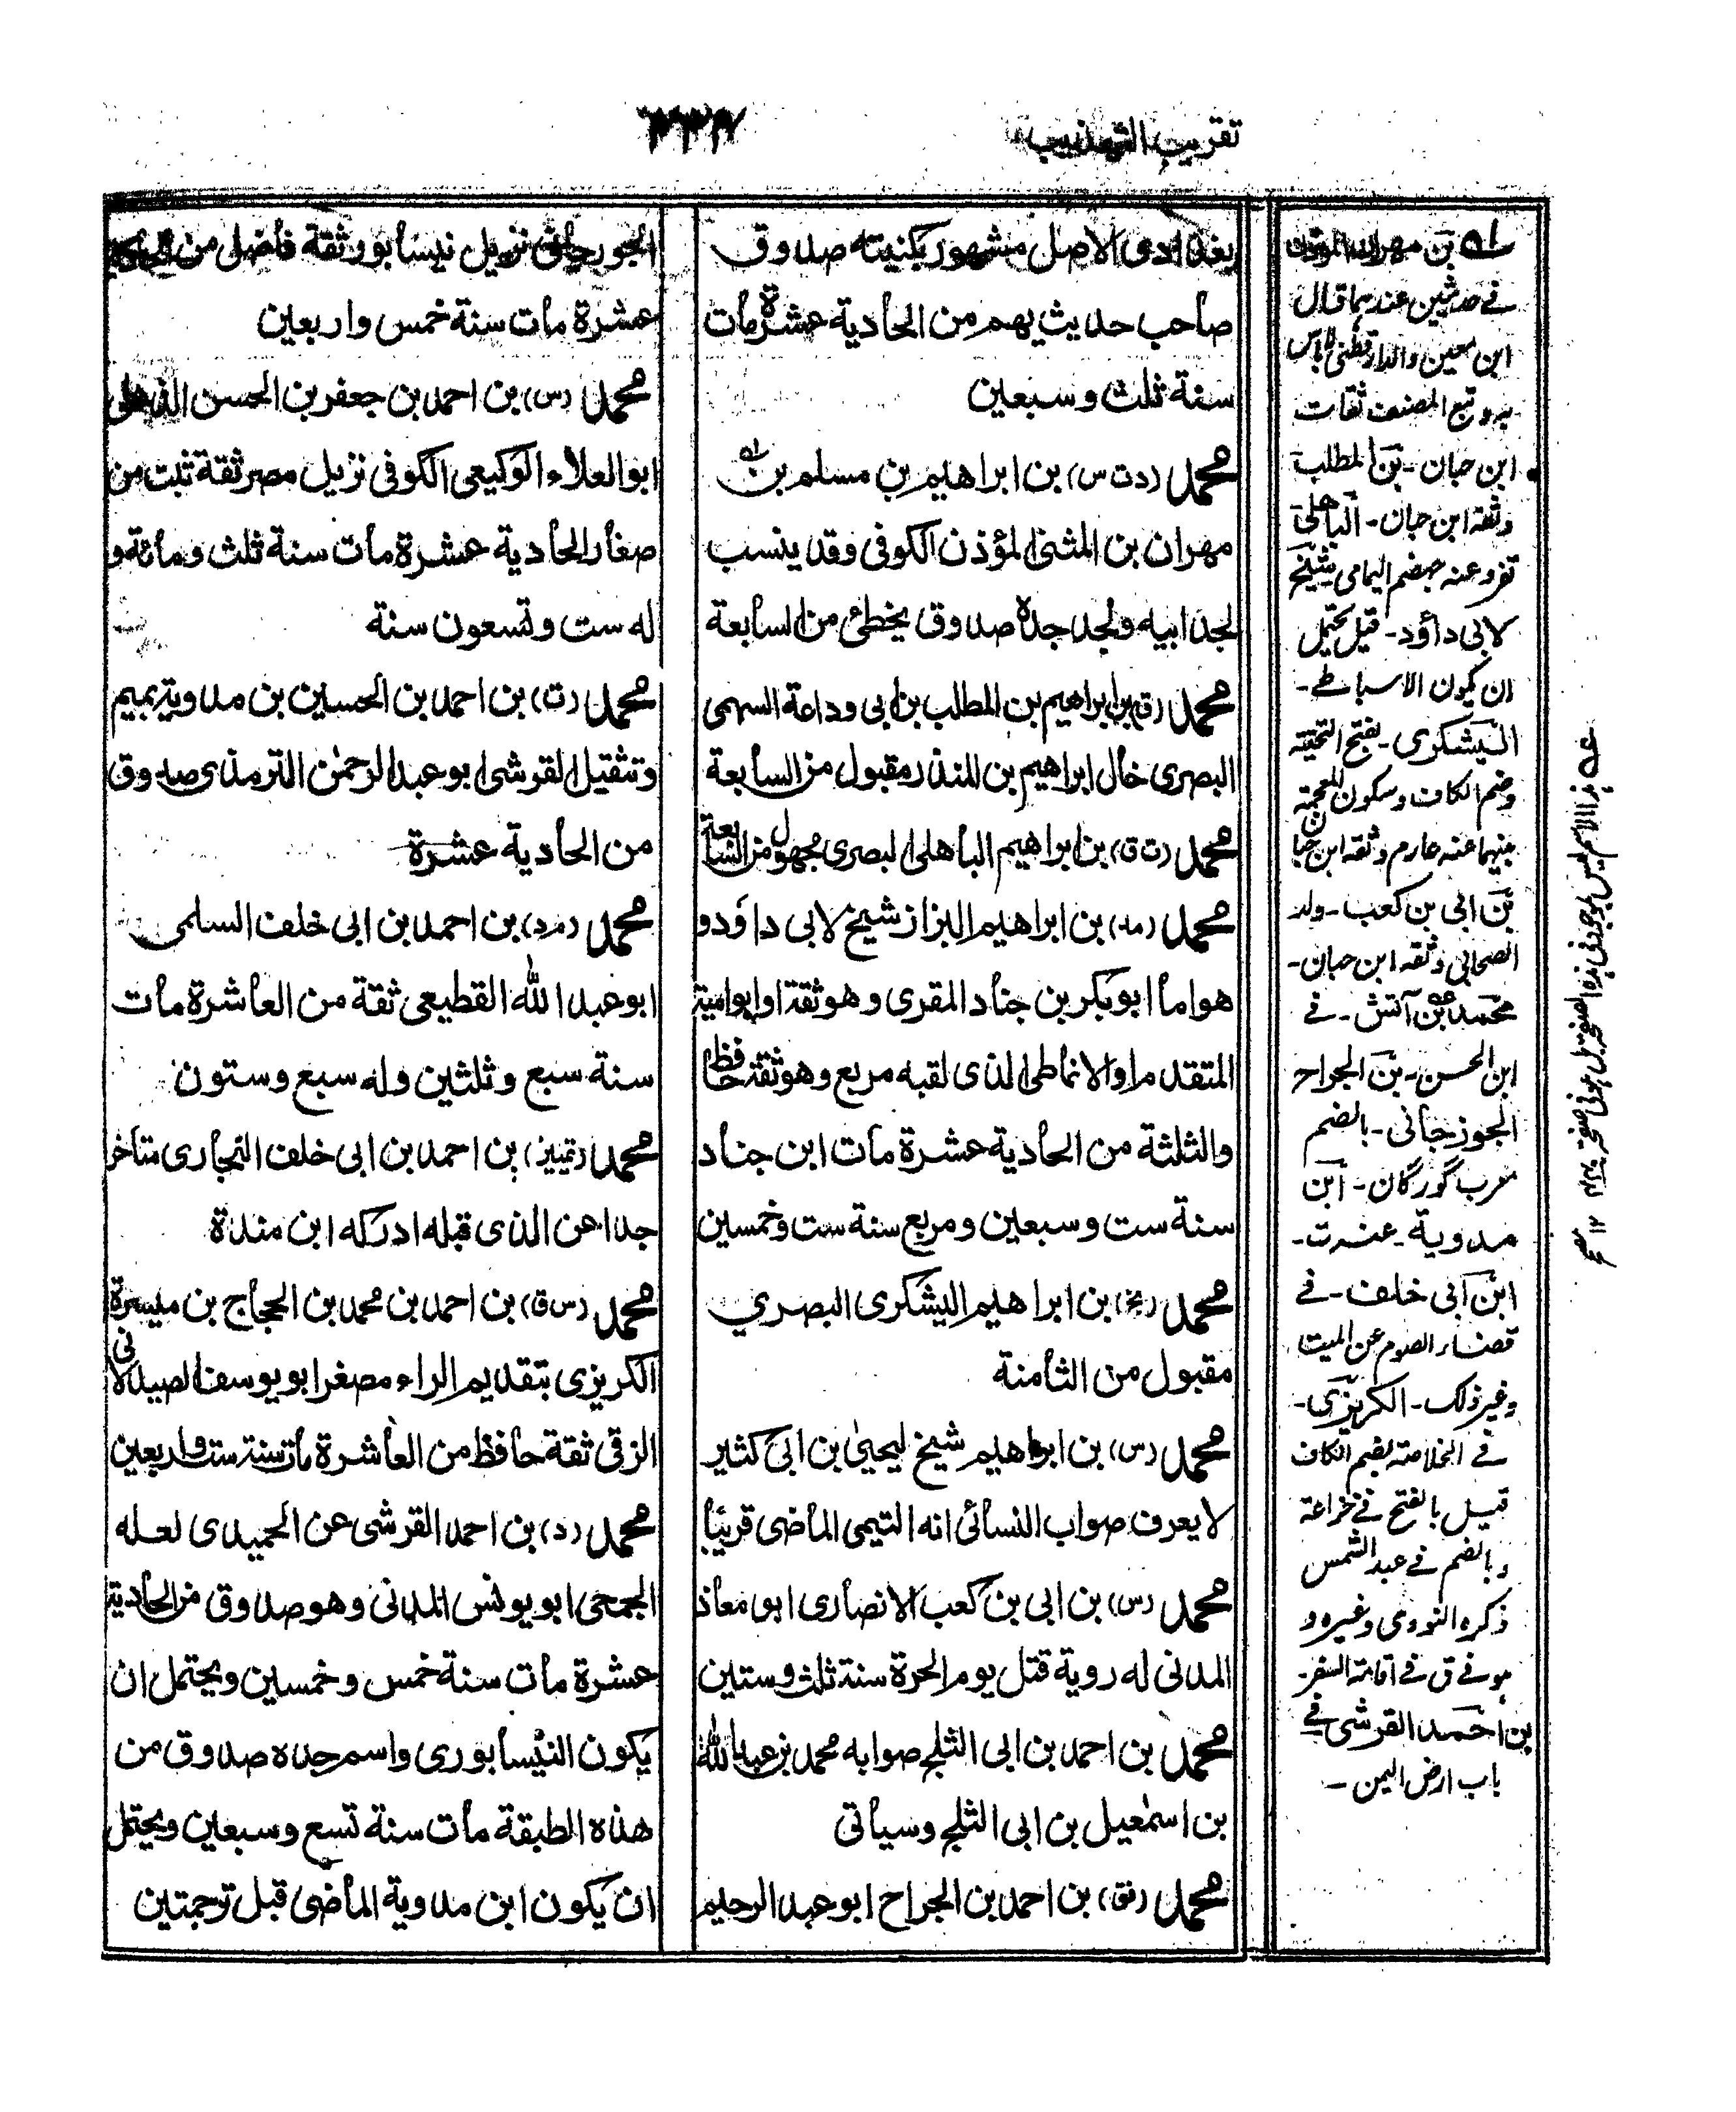 تقريب التهذيب
بغدادى الاصل مشهور بكنيته صدوق
صاحب حديث يهم من الحادية عشرة مات
سنة ثلث وسبعين
محمد (دت س) بن ابراهيم بن مسلم بن
مهران بن المثنى المؤذن الكوفى وقد ينسب
لجد ابيه ولجد جده صدوق يخطئ من السابعة
محمد (ق) بن ابراهيم بن المطلب بن ابى وداعة السهمى
البصرى خال ابراهيم بن المنذر مقبول من السابعة
محمد (ت ق) بن ابراهيم الباهلى البصرى مجهول من السابعة
محمد (مد) بن ابراهيم البزاز شيخ لابى داؤد و
هو اما ابو بكر بن جناد المقرى وهو ثقة او ابو امية
المتقدم او الانماطى الذى لقبه مربع وهو ثقة حافظ
والثلثة من الحادية عشرة مات ابن جناد
سنة ست وسبعين ومربع سنة ست وخمسين
محمد (بخ) بن ابراهيم اليشكرى البصري
مقبول من الثامنة
محمد (س) بن ابراهيم شيخ ليحيى بن ابى كثير
لا يعرف صواب النسائى انه التيمى الماضى قريبا
محمد (س) بن ابى بن كعب الانصارى ابو معاذ
المدنى له روية قتل يوم الحرة سنة ثلث وستين
محمد بن احمد بن ابى الثلج صوابه محمد بن عبد الله
بن اسمٰعيل بن ابى الثلج وسياتى
محمد (تق) بن احمد بن الجراح ابو عبد الرحيم
الجوزجانى نزيل نيسابور ثقة فاضل من الحادية
عشرة مات سنة خمس واربعين
محمد (س) بن احمد بن جعفر بن الحسن الذهلى
ابو العلاء الوكيعى الكوفى نزيل مصر ثقة ثبت من
صغار الحادية عشرة مات سنة ثلث ومائة و
له ست وتسعون سنة
محمد (ت) بن احمد بن الحسين بن مدوية بميم
وتثقيل القرشى ابو عبد الرحمٰن الترمذى صدوق
من الحادية عشرة
محمد (مرد) بن احمد بن ابى خلف السلمى
ابو عبد الله القطيعى ثقة من العاشرة مات
سنة سبع وثلثين وله سبع وستون
محمد (تمييز) بن احمد بن ابى خلف البخارى متأخر
جدا عن الذى قبله ادركه ابن مندة
محمد (س ق) بن احمد بن محمد بن الحجاج بن ميسرة
الكريزى بتقديم الراء مصغرا ابو يوسف الصيدلانى
الرقى ثقة حافظ من العاشرة مات سنة ست واربعين
محمد (د) بن احمد القرشى عن الحميدى لعله
الجمحى ابو يونس المدنى وهو صدوق من الحادية
عشرة مات سنة خمس وخمسين ويحتمل ان
يكون النيسابورى واسم جده صدوق من
هذه الطبقة مات سنة تسع وسبعين ويحتمل
ان يكون ابن مدوية الماضى قبل ترجمتين
بن مهران المؤذن
فے حدثين عندهما قال
ابن معين والدارقطنى لا باس
به وتبع المصنف ثقات
ابن حبان - بن المطلب
وثقه ابن حبان - الباهلى
تفرد عنه جهضم اليمامى شيخ
لابى داؤد - قيل يحتمل
ان يكون الاسباطے -
اليشكرى - بفتح التحتية
وضم الكاف وسكون المعجمة
بينهما عنه عارم وثقه ابن حبان
بن ابى بن كعب - ولد
الصحابى وثقه ابن حبان -
محمد بن آتش - فے
ابن الحسن - بن الجراح
الجوزجانى - بالضم
معرب گورگان - ابن
مدوية - عنه ت -
ابن ابى خلف - فے
قضاء الصوم عن الميت
وغير ذلك - الكريزى -
فے الخلاصة بضم الكاف
قيل بالفتح فے خزاعة
وبالضم فے عبد الشمس
ذكره النووى وغيره و
هو فے ق فے اقامة السفر -
بن احمد القرشى فے
باب ارض اليمن -
هذا الاسم ليس بموجود فى هذه الصفحة بل هو فى صفحة